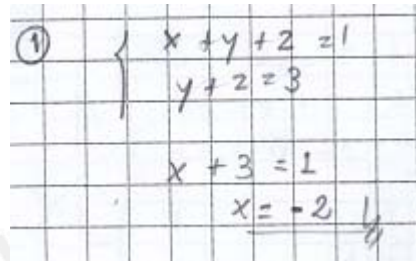 ① x + y + z = 1
y + z = 3
x + 3 = 1
x = -2